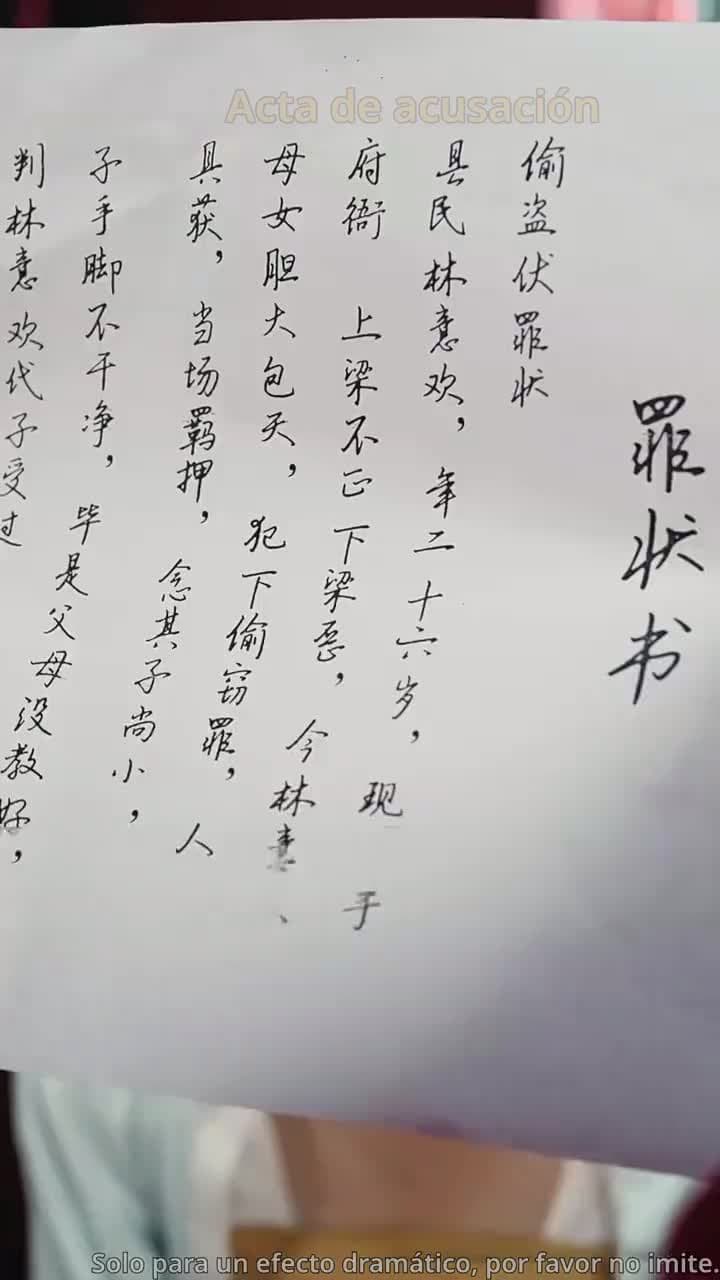 Acta de acusación
罪状书
偷盗伏罪状
县民林意欢，年二十六岁，现于
府衙 上梁不正下梁歪，今林意、
母女胆大包天，犯下偷窃罪，人
具获，当场羁押，念其子尚小，
子手脚不干净，毕是父母没教好，
判林意欢代子受过
Solo para un efecto dramático, por favor no imite.